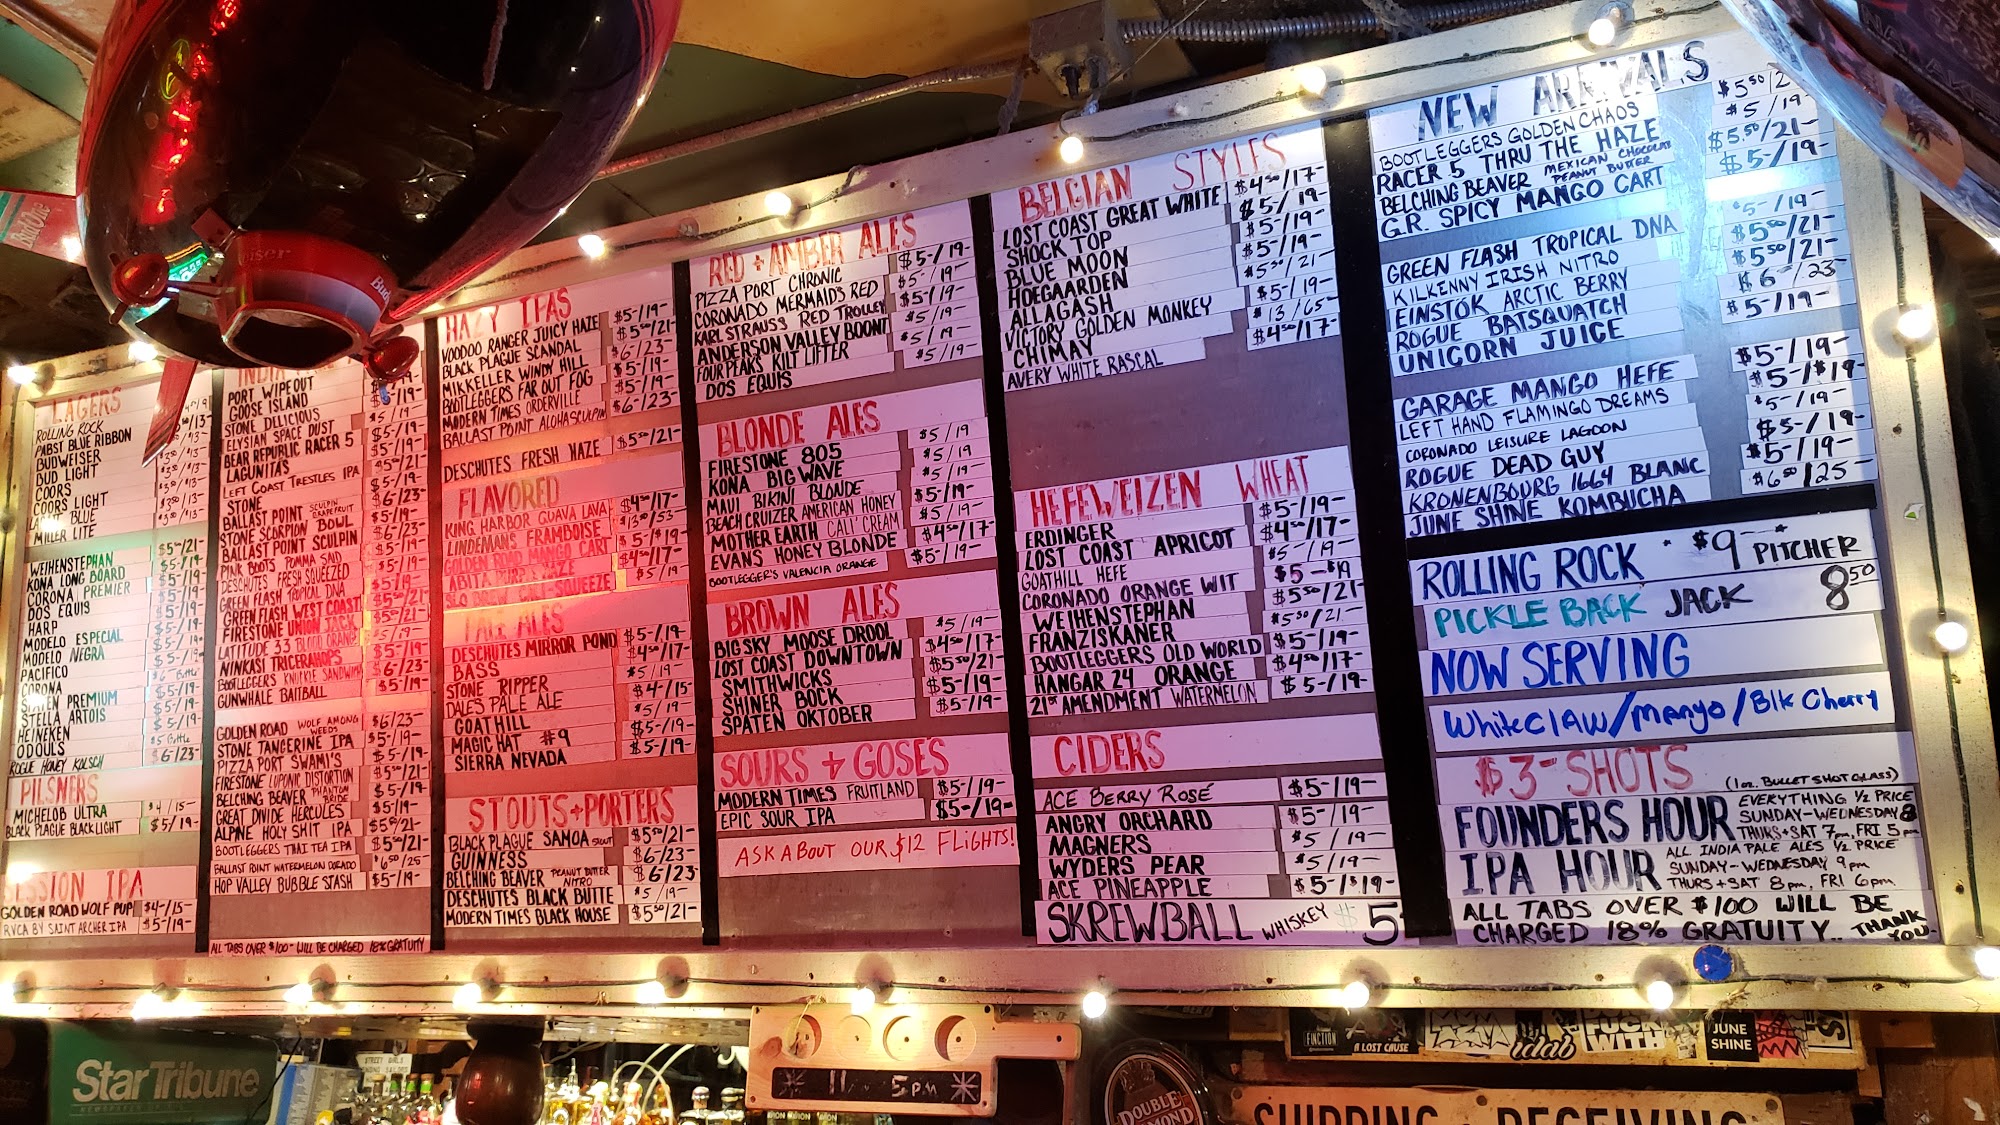 LAGERS
ROLLING ROCK
PABST BLUE RIBBON
BUDWEISER
BUD LIGHT
COORS
COORS LIGHT
BLUE
MILLER LITE
WEIHENSTEPHAN $5⁵⁰/21-
KONA LONG BOARD $5-/19-
CORONA PREMIER $5-/19-
DOS EQUIS $5-/19-
HARP $5-/19-
MODELO ESPECIAL $5-/19-
MODELO NEGRA $5-/19-
PACIFICO
CORONA $5-/19-
PREMIUM $5-/19-
STELLA ARTOIS $5-/19-
HEINEKEN $5-/19-
ODOULS $5 Bottle
ROGUE HONEY KOLSCH $6/23-
PILSNERS
MICHELOB ULTRA $4/15-
BLACK PLAGUE BLACKLIGHT $5/19-
SESSION IPA
GOLDEN ROAD WOLF PUP $4-/15-
RVCA BY SAINT ARCHER IPA $5-/19-
PORT WIPEOUT
GOOSE ISLAND
STONE DELICIOUS
ELYSIAN SPACE DUST
BEAR REPUBLIC RACER 5
LAGUNITAS
LEFT COAST TRESTLES IPA
STONE
BALLAST POINT SCULPIN GRAPEFRUIT
STONE SCORPION BOWL
BALLAST POINT SCULPIN
PINK BOOTS POMMA SAID
DESCHUTES FRESH SQUEEZED
GREEN FLASH TROPICAL DNA
GREEN FLASH WEST COAST
FIRESTONE UNION JACK
LATITUDE 33 BLOOD ORANGE
NINKASI TRICERAHOPS
BOOTLEGGERS KNUCKLE SANDWICH
GUNWHALE BAITBALL
GOLDEN ROAD WOLF AMONG WEEDS $6/23-
STONE TANGERINE IPA $5-/19-
PIZZA PORT SWAMI'S $5-/19-
FIRESTONE LUPONIC DISTORTION $5⁵⁰/21-
BELCHING BEAVER PHANTOM BRIDE $5-/19-
GREAT DIVIDE HERCULES $5/19-
ALPINE HOLY SHIT IPA $5⁵⁰/21-
BOOTLEGGERS THAI TEA IPA $5-/19-
BALLAST POINT WATERMELON DORADO $6⁵⁰/25-
HOP VALLEY BUBBLE STASH $5-/19-
ALL TABS OVER $100- WILL BE CHARGED 18% GRATUITY
HAZY IPAS
VOODOO RANGER JUICY HAZE $5-/19-
BLACK PLAGUE SCANDAL $5⁵⁰/21-
MIKKELLER WINDY HILL $6/23-
BOOTLEGGERS FAR OUT FOG $5-/19-
MODERN TIMES ORDERVILLE $5-/19-
BALLAST POINT ALOHA SCULPIN $6-/23-
DESCHUTES FRESH HAZE $5⁵⁰/21-
FLAVORED
KING HARBOR GUAVA LAVA $4⁵⁰/17-
LINDEMANS FRAMBOISE $13⁵⁰/53-
GOLDEN ROAD MANGO CART $5-/$19-
ABITA PURPLE HAZE $4⁵⁰/17-
SLO BREW CALI-SQUEEZE $5/19-
PALE ALES
DESCHUTES MIRROR POND $5-/19-
BASS $4⁵⁰/17-
STONE RIPPER $5/19-
DALES PALE ALE $4-/15-
GOATHILL $5/19-
MAGIC HAT #9 $5-/19-
SIERRA NEVADA $5-/19-
STOUTS + PORTERS
BLACK PLAGUE SAMOA STOUT $5⁵⁰/21-
GUINNESS $6/23-
BELCHING BEAVER PEANUT BUTTER NITRO $6/23-
DESCHUTES BLACK BUTTE $5/19-
MODERN TIMES BLACK HOUSE $5⁵⁰/21-
RED + AMBER ALES
PIZZA PORT CHRONIC $5-/19-
CORONADO MERMAIDS RED $5-/19-
KARL STRAUSS RED TROLLEY $5-/19-
ANDERSON VALLEY BOONT $5/19-
FOUR PEAKS KILT LIFTER $5/19-
DOS EQUIS $5/19-
BLONDE ALES
FIRESTONE 805 $5/19
KONA BIG WAVE $5/19
MAUI BIKINI BLONDE $5/19-
BEACH CRUIZER AMERICAN HONEY $5-/19-
MOTHER EARTH CALI' CREAM $5/19-
EVANS HONEY BLONDE $4⁵⁰/17-
BOOTLEGGER'S VALENCIA ORANGE $5-/19-
BROWN ALES
BIG SKY MOOSE DROOL $5/19-
LOST COAST DOWNTOWN $4⁵⁰/17-
SMITHWICKS $5⁵⁰/21-
SHINER BOCK $5-/19-
SPATEN OKTOBER $5-/19-
SOURS + GOSES
MODERN TIMES FRUITLAND $5-/19-
EPIC SOUR IPA $5-/19-
ASK ABOUT OUR $12 FLIGHTS!
BELGIAN STYLES
LOST COAST GREAT WHITE $4⁵⁰/17-
SHOCK TOP $5/19-
BLUE MOON $5/19-
HOEGAARDEN $5-/19-
ALLAGASH $5⁵⁰/21-
VICTORY GOLDEN MONKEY $5-/19-
CHIMAY $13/65-
AVERY WHITE RASCAL $4⁵⁰/17-
HEFEWEIZEN WHEAT
ERDINGER $5-/19-
LOST COAST APRICOT $4⁵⁰/17-
GOATHILL HEFE $5-/19-
CORONADO ORANGE WIT $5-$19
WEIHENSTEPHAN $5⁵⁰/21-
FRANZISKANER $5⁵⁰/21-
BOOTLEGGERS OLD WORLD $5-/19-
HANGAR 24 ORANGE $4⁵⁰/17-
21ST AMENDMENT WATERMELON $5-/19-
CIDERS
ACE BERRY ROSE $5-/19-
ANGRY ORCHARD $5-/19-
MAGNERS $5/19-
WYDERS PEAR $5/19-
ACE PINEAPPLE $5-/$19-
SKREWBALL WHISKEY $5
NEW ARRIVALS
BOOTLEGGERS GOLDEN CHAOS $5⁵⁰/2
RACER 5 THRU THE HAZE $5/19-
BELCHING BEAVER MEXICAN CHOCOLATE PEANUT BUTTER $5⁵⁰/21-
G.R. SPICY MANGO CART $5-/19-
GREEN FLASH TROPICAL DNA $5-/19-
KILKENNY IRISH NITRO $5⁵⁰/21
EINSTÖK ARCTIC BERRY $5⁵⁰/21-
ROGUE BATSQUATCH $6/23-
UNICORN JUICE $5-/19-
GARAGE MANGO HEFE $5-/19-
LEFT HAND FLAMINGO DREAMS $5-/$19-
CORONADO LEISURE LAGOON $5-/19-
ROGUE DEAD GUY $5-/19-
KRONENBOURG 1664 BLANC $5-/19-
JUNE SHINE KOMBUCHA $6⁵⁰/25-
ROLLING ROCK • $9- PITCHER
PICKLE BACK JACK 8⁵⁰
NOW SERVING
WhiteClaw/Mango/Blk Cherry
$3- SHOTS (1oz. BULLET SHOT GLASS)
FOUNDERS HOUR EVERYTHING ½ PRICE
SUNDAY-WEDNESDAY 8
THURS+SAT 7pm, FRI 5pm
IPA HOUR ALL INDIA PALE ALES ½ PRICE
SUNDAY-WEDNESDAY 9pm
THURS+SAT 8pm, FRI 6pm
ALL TABS OVER $100 WILL BE
CHARGED 18% GRATUITY.. THANK YOU-
StarTribune
5pm
DOUBLE
FINCTION
A LOST CAUSE
idab
FUCK WITH
JUNE SHINE
SHIPPING - RECEIVING